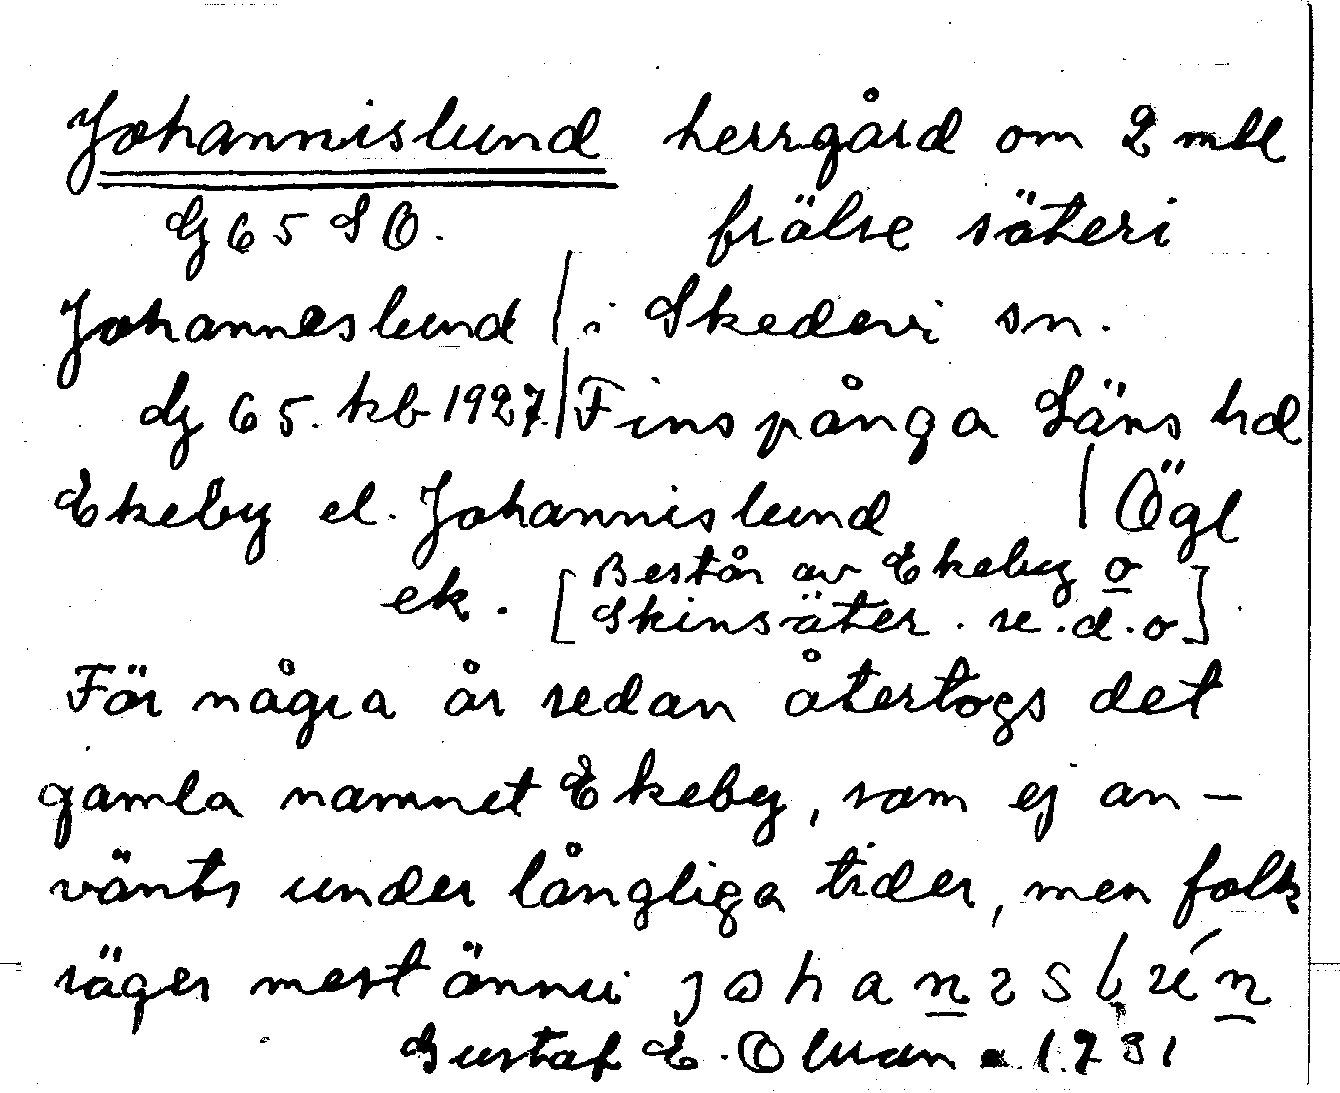 Johannislund herrgård om 2 mtl
dg 65 SO. frälse säteri
Johanneslund | i Skedevi sn.
dg 65. kb 1927. | Finspånga Läns hd
Ekeby el. Johannislund | Ögl
ek. [Består av Ekeby o
Skinsäter. se.d.o].
För några år sedan återtogs det
gamla namnet Ekeby, som ej an-
vänts under långliga tider, men folk
säger mest ännu
Gustaf E. Olsson